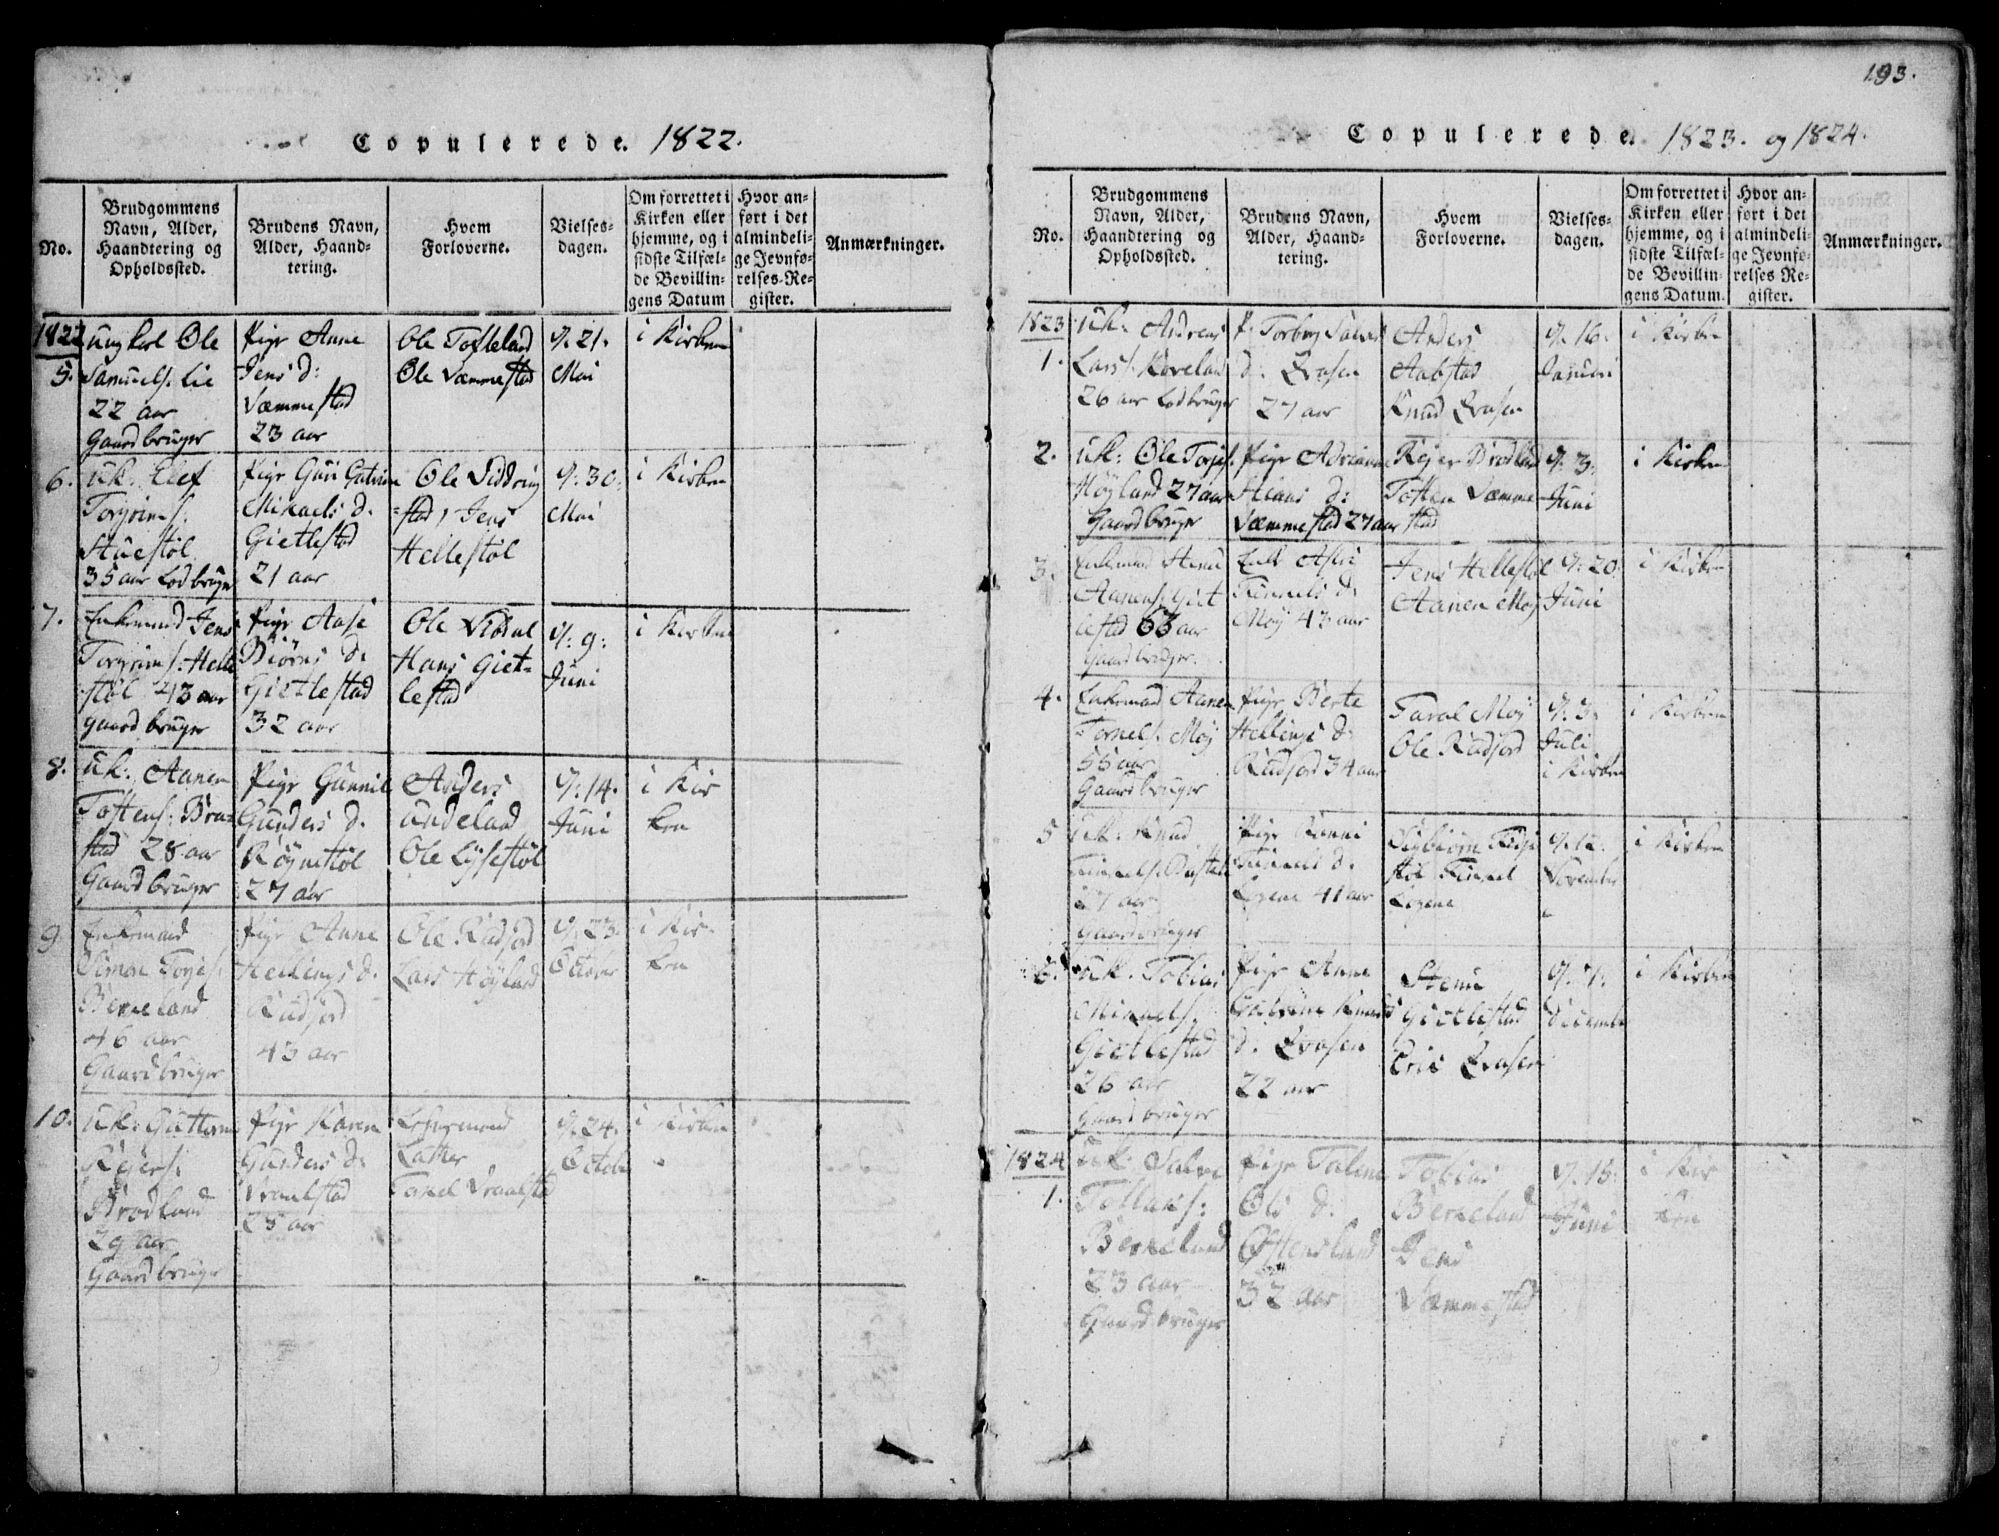 Copulerede. 1822.
No.
Brudgommens
Navn, Alder,
Haandtering og
Opholdssted.
Brudens Navn,
Alder, Haand-
tering.
Hvem
Forloverne.
Vielses-
dagen.
Om forrettet i
Kirken eller
hjemme, og i
sidste Tilfæl-
de Bevillin-
gens Datum
Hvor an-
ført i det
almindeli-
ge Jevnfø-
relses-Re-
gister.
Anmærkninger.
1822
5.
ungkarl Ole
Samuels. Lie
22 aar
Gaardbruger
Pige Anne
Jens d:
Væmmestad
23 aar
Ole Tofteland
Ole Væmmestad
d. 21.
Mai
i Kirken
6.
uk. Elef
Torgrims.
Stuestøl
35 aar Lodbruger
Pige Guri Catrine
Mikaels d.
Gietlestad
21 aar
Ole
stad, Jens
Hellestøl
d. 30.
Mai
i Kirken
7.
Enkemand Jens
Torgrims. Helle
støl 43 aar
gaardbruger
Pige Aase
Biørns d.
Gietlestad
32 aar
Ole
Hans Giet-
lestad
d. 9:
Juni
i Kirken
8.
uk. Aanen
Tostens. Bru-
stad 28 aar
Gaardbruger
Pige Gunnil
Gunders d.
Røynestøl
27 aar
Anders
undeland
Ole Lysestøl
d. 14.
Juni
i Kir
ken
9.
Enkemand
Simon Torjes.
Berkeland
46 aar
Gaardbruger
Pige Anne
Hellings d.
Rudjord
43 aar
Ole Rudjord
Lars Høyland
d. 23.
October
i Kir-
ken
10.
uk. Guttorm
Reiers.
Brodland
29 aar
Gaardbruger
Pige Karen
Gunders d.
Vraalstad
28 aar
Lehnsmand
Lasken
Taxel Vraalstad
d. 24.
October
i Kirken
193.
Copulerede. 1823. og 1824.
No.
Brudgommens
Navn, Alder,
Haandtering og
Opholdssted.
Brudens Navn,
Alder, Haand-
tering.
Hvem
Forloverne.
Vielses-
dagen.
Om forrettet i
Kirken eller
hjemme, og i
sidste Tilfæl-
de Bevillin-
gens Datum.
Hvor an-
ført i det
almindeli-
ge Jevnfø-
relses Re-
gister.
Anmærkninger.
1823
1.
uk: Andreas
Lars. Koveland
26 aar Lodbruger
P. Torborg Salves
d. Evasen
27 aar
Anders
Aabstad
Knud Evasen
d. 16.
Januari
i Kirken
2.
uk: Ole Torjes.
Høyland 27 aar
Gaardbruger
Pige Adrianne
Steans d:
Væmmestad 27 aar
Reier Brodland
Tosten Væmme
stad
d. 3.
Juni
i Kirken
3.
Enkemand Stenu
Aanens. Giet
lestad 63 aar
Gaardbruger.
Enke Asli
d.
Møy 43 aar
Jens Hellestøl
Aanen Møy
d. 20
Juni
i Kirken
4.
Enkemand Aanen
Møy
55 aar
Gaardbruger
Pige Berte
Hellings d.
Rudjord 34 aar
Taral Møy
Ole Rudjord
d. 3.
Juli
i Kirken
i Kirken
5
uk. Knud
27 aar
gaardbruger
Pige
d.
Ligene 41 aar
støl
Ligene
d. 12.
November
i Kirken
6.
uk. Tobias
Mikaels.
Gietlestad
26 aar
gaardbruger
Pige Anne
Catrine Knuds
d. Evasen
22 aar
Stenu
Gietlestad
Eric Evasen
d. 7.
December
i Kirken
1824
1.
uk. Salve
Tollaks:
Berkeland
23 aar
Gaardbruger
Pige Talene
Ols d:
Østensland
32 aar
Tobias
Berkeland
Jens
Væmmestad
d. 15.
Juni
i Kir
ken